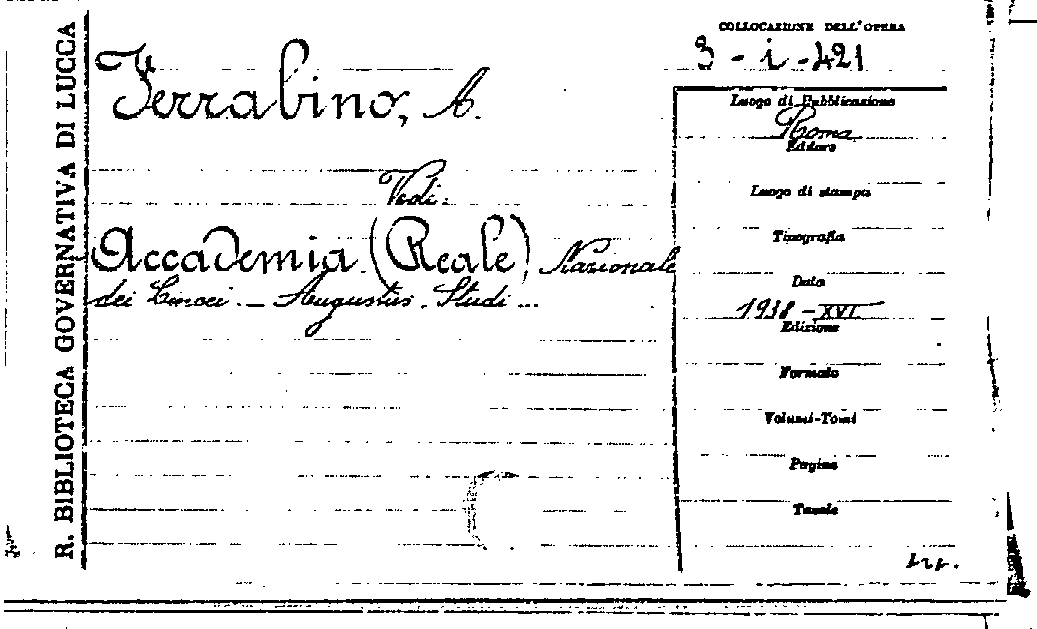 R. BIBLIOTECA GOVERNATIVA DI LUCCA
Ferrabino, A.
Vedi:
Accademia (Reale) Nazionale
dei Lincei. - Augustus. Studi ...
COLLOCAZIONE DELL'OPERA
3 - i - 421
Luogo di Pubblicazione
Roma
Editore
Luogo di stampa
Tipografia
Data
1938 - XVI
Edizione
Formato
Volumi-Tomi
Pagine
Tavole